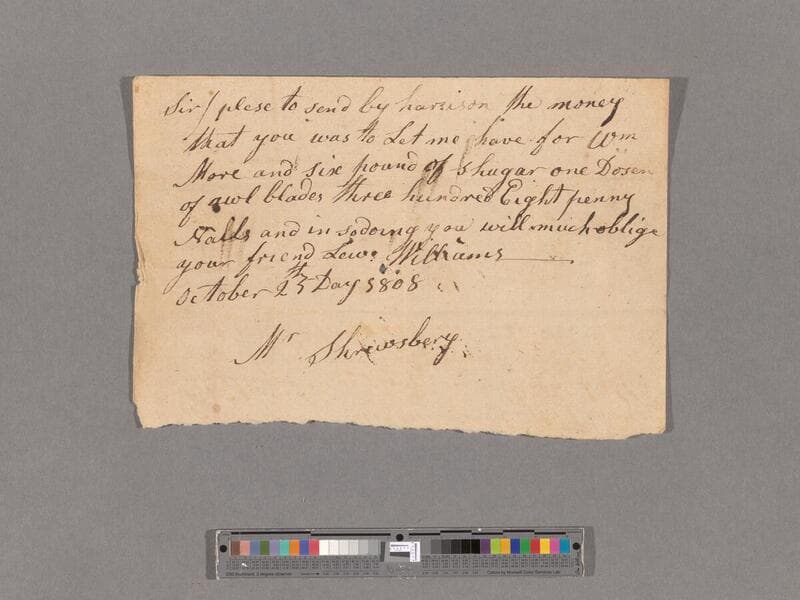 Sir/ plese to send by harrison the money
that you was to Let me have for Wm
More and six pound of shugar one Dosen
of awl blades three hundred Eight penny
Nalls and in so doing you will much oblige
your friend Lew: Williams
October 25th Day 1808
Mr Shrewsbery